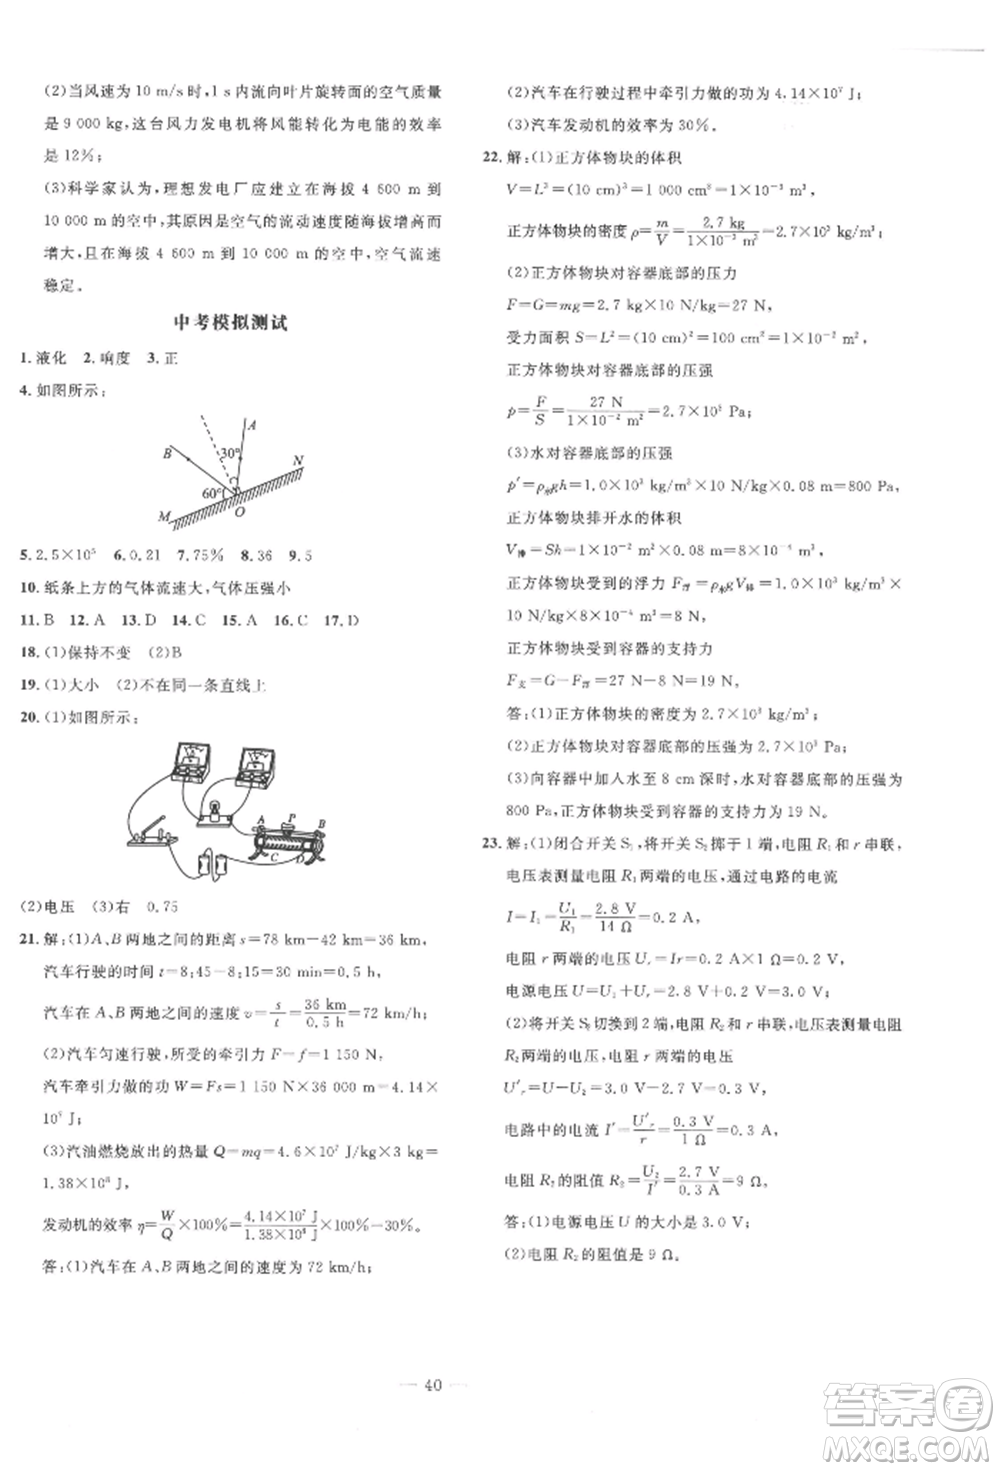 (2)当风速为 10 m/s 时,1 s 内流向叶片旋转面的空气质量
是 9 000 kg,这台风力发电机将风能转化为电能的效率
是 12%;
(3)科学家认为,理想发电厂应建立在海拔 4 600 m 到
10 000 m 的空中,其原因是空气的流动速度随海拔增高而
增大,且在海拔 4 600 m 到 10 000 m 的空中,空气流速
稳定。
中考模拟测试
1.液化 2.响度 3.正
4.如图所示:
A
B
30°
N
60°
M
O
5.2.5×10⁵ 6.0.21 7.75% 8.36 9.5
10.纸条上方的气体流速大,气体压强小
11.B 12.A 13.D 14.C 15.A 16.C 17.D
18.(1)保持不变 (2)B
19.(1)大小 (2)不在同一条直线上
20.(1)如图所示:
A P B
C D
(2)电压 (3)右 0.75
21.解:(1)A、B 两地之间的距离 s=78 km-42 km=36 km,
汽车行驶的时间 t=8:45-8:15=30 min=0.5 h,
汽车在 A、B 两地之间的速度 v=s/t=36 km/0.5 h=72 km/h;
(2)汽车匀速行驶,所受的牵引力 F=f=1 150 N,
汽车牵引力做的功 W=Fs=1 150 N×36 000 m=4.14×
10⁷ J;
(3)汽油燃烧放出的热量 Q=mq=4.6×10⁷ J/kg×3 kg=
1.38×10⁸ J,
发动机的效率 η=W/Q×100%=4.14×10⁷ J/1.38×10⁸ J×100%=30%。
答:(1)汽车在 A、B 两地之间的速度为 72 km/h;
(2)汽车在行驶过程中牵引力做的功为 4.14×10⁷ J;
(3)汽车发动机的效率为 30%。
22.解:(1)正方体物块的体积
V=L³=(10 cm)³=1 000 cm³=1×10⁻³ m³,
正方体物块的密度 ρ=m/V=2.7 kg/1×10⁻³ m³=2.7×10³ kg/m³;
(2)正方体物块对容器底部的压力
F=G=mg=2.7 kg×10 N/kg=27 N,
受力面积 S=L²=(10 cm)²=100 cm²=1×10⁻² m²,
正方体物块对容器底部的压强
p=F/S=27 N/1×10⁻² m²=2.7×10³ Pa;
(3)水对容器底部的压强
p′=ρ水gh=1.0×10³ kg/m³×10 N/kg×0.08 m=800 Pa,
正方体物块排开水的体积
V排=Sh=1×10⁻² m²×0.08 m=8×10⁻⁴ m³,
正方体物块受到的浮力 F浮=ρ水gV排=1.0×10³ kg/m³×
10 N/kg×8×10⁻⁴ m³=8 N,
正方体物块受到容器的支持力
F支=G-F浮=27 N-8 N=19 N,
答:(1)正方体物块的密度为 2.7×10³ kg/m³;
(2)正方体物块对容器底部的压强为 2.7×10³ Pa;
(3)向容器中加入水至 8 cm 深时,水对容器底部的压强为
800 Pa,正方体物块受到容器的支持力为 19 N。
23.解:(1)闭合开关 S₁,将开关 S₂ 掷于 1 端,电阻 R₁ 和 r 串联,
电压表测量电阻 R₁ 两端的电压,通过电路的电流
I=I₁=U₁/R₁=2.8 V/14 Ω=0.2 A,
电阻 r 两端的电压 Uᵣ=Ir=0.2 A×1 Ω=0.2 V,
电源电压 U=U₁+Uᵣ=2.8 V+0.2 V=3.0 V;
(2)将开关 S₂ 切换到 2 端,电阻 R₂ 和 r 串联,电压表测量电阻
R₂ 两端的电压,电阻 r 两端的电压
U′ᵣ=U-U₂=3.0 V-2.7 V=0.3 V,
电路中的电流 I′=U′ᵣ/r=0.3 V/1 Ω=0.3 A,
电阻 R₂ 的阻值 R₂=U₂/I′=2.7 V/0.3 A=9 Ω,
答:(1)电源电压 U 的大小是 3.0 V;
(2)电阻 R₂ 的阻值是 9 Ω。
— 40 —
答案圈
MXQE.COM